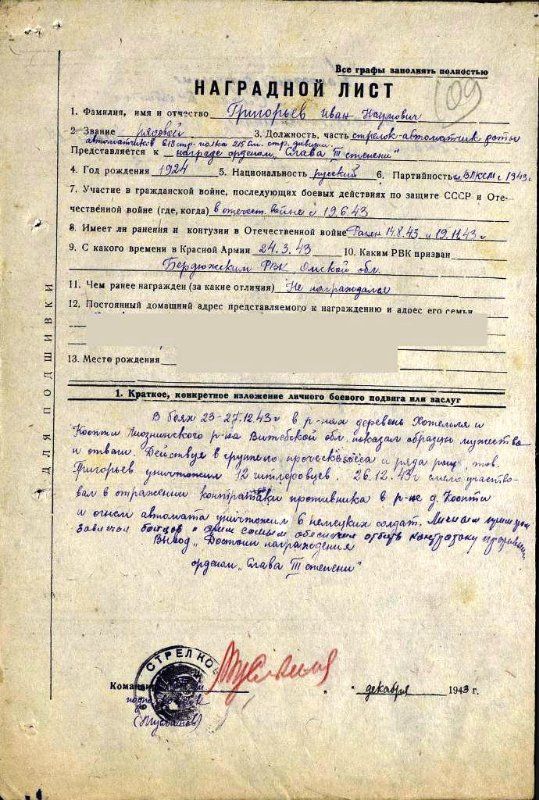 Все графы заполнять полностью
109
НАГРАДНОЙ ЛИСТ
1. Фамилия, имя и отчество Григорьев Иван Наумович
2. Звание рядовой 3. Должность, часть стрелок-автоматчик роты
автоматчиков 618 стр. полка 215 стр. дивизии.
Представляется к награде орденом „Слава III степени"
4. Год рождения 1924 5. Национальность русский 6. Партийность ВЛКСМ с 1943 г.
7. Участие в гражданской войне, последующих боевых действиях по защите СССР и Оте-
чественной войне (где, когда) в отечест. войне с 19.6.43
8. Имеет ли ранения и контузии в Отечественной войне Ранен 14.8.43 и 19.11.43 г.
9. С какого времени в Красной Армии 24.3.43 10. Каким РВК призван
Бердюжским РВК Омской обл.
11. Чем ранее награжден (за какие отличия) Не награждался
12. Постоянный домашний адрес представляемого к награждению и адрес его семьи
13. Место рождения
ДЛЯ ПОДШИВКИ
1. Краткое, конкретное изложение личного боевого подвига или заслуг
В боях 23-27.12.43 г в р-нах деревень Хотемля и
Копти Лиознинского р-на Витебской обл. показал образцы мужества
и отваги. Действуя в группе по прочёске леса и ряда рощ, тов.
Григорьев уничтожил 12 гитлеровцев. 26.12.43 г смело участво-
вал в отражении контратаки противника в р-не д. Копти
и огнем автомата уничтожил 6 немецких солдат. Личным примером
бойцов и этим самым обеспечил отбить контратаку
Вывод. Достоин награждения
орденом „Слава III степени"
СТРЕЛКО
Команд
декабря 1943 г.